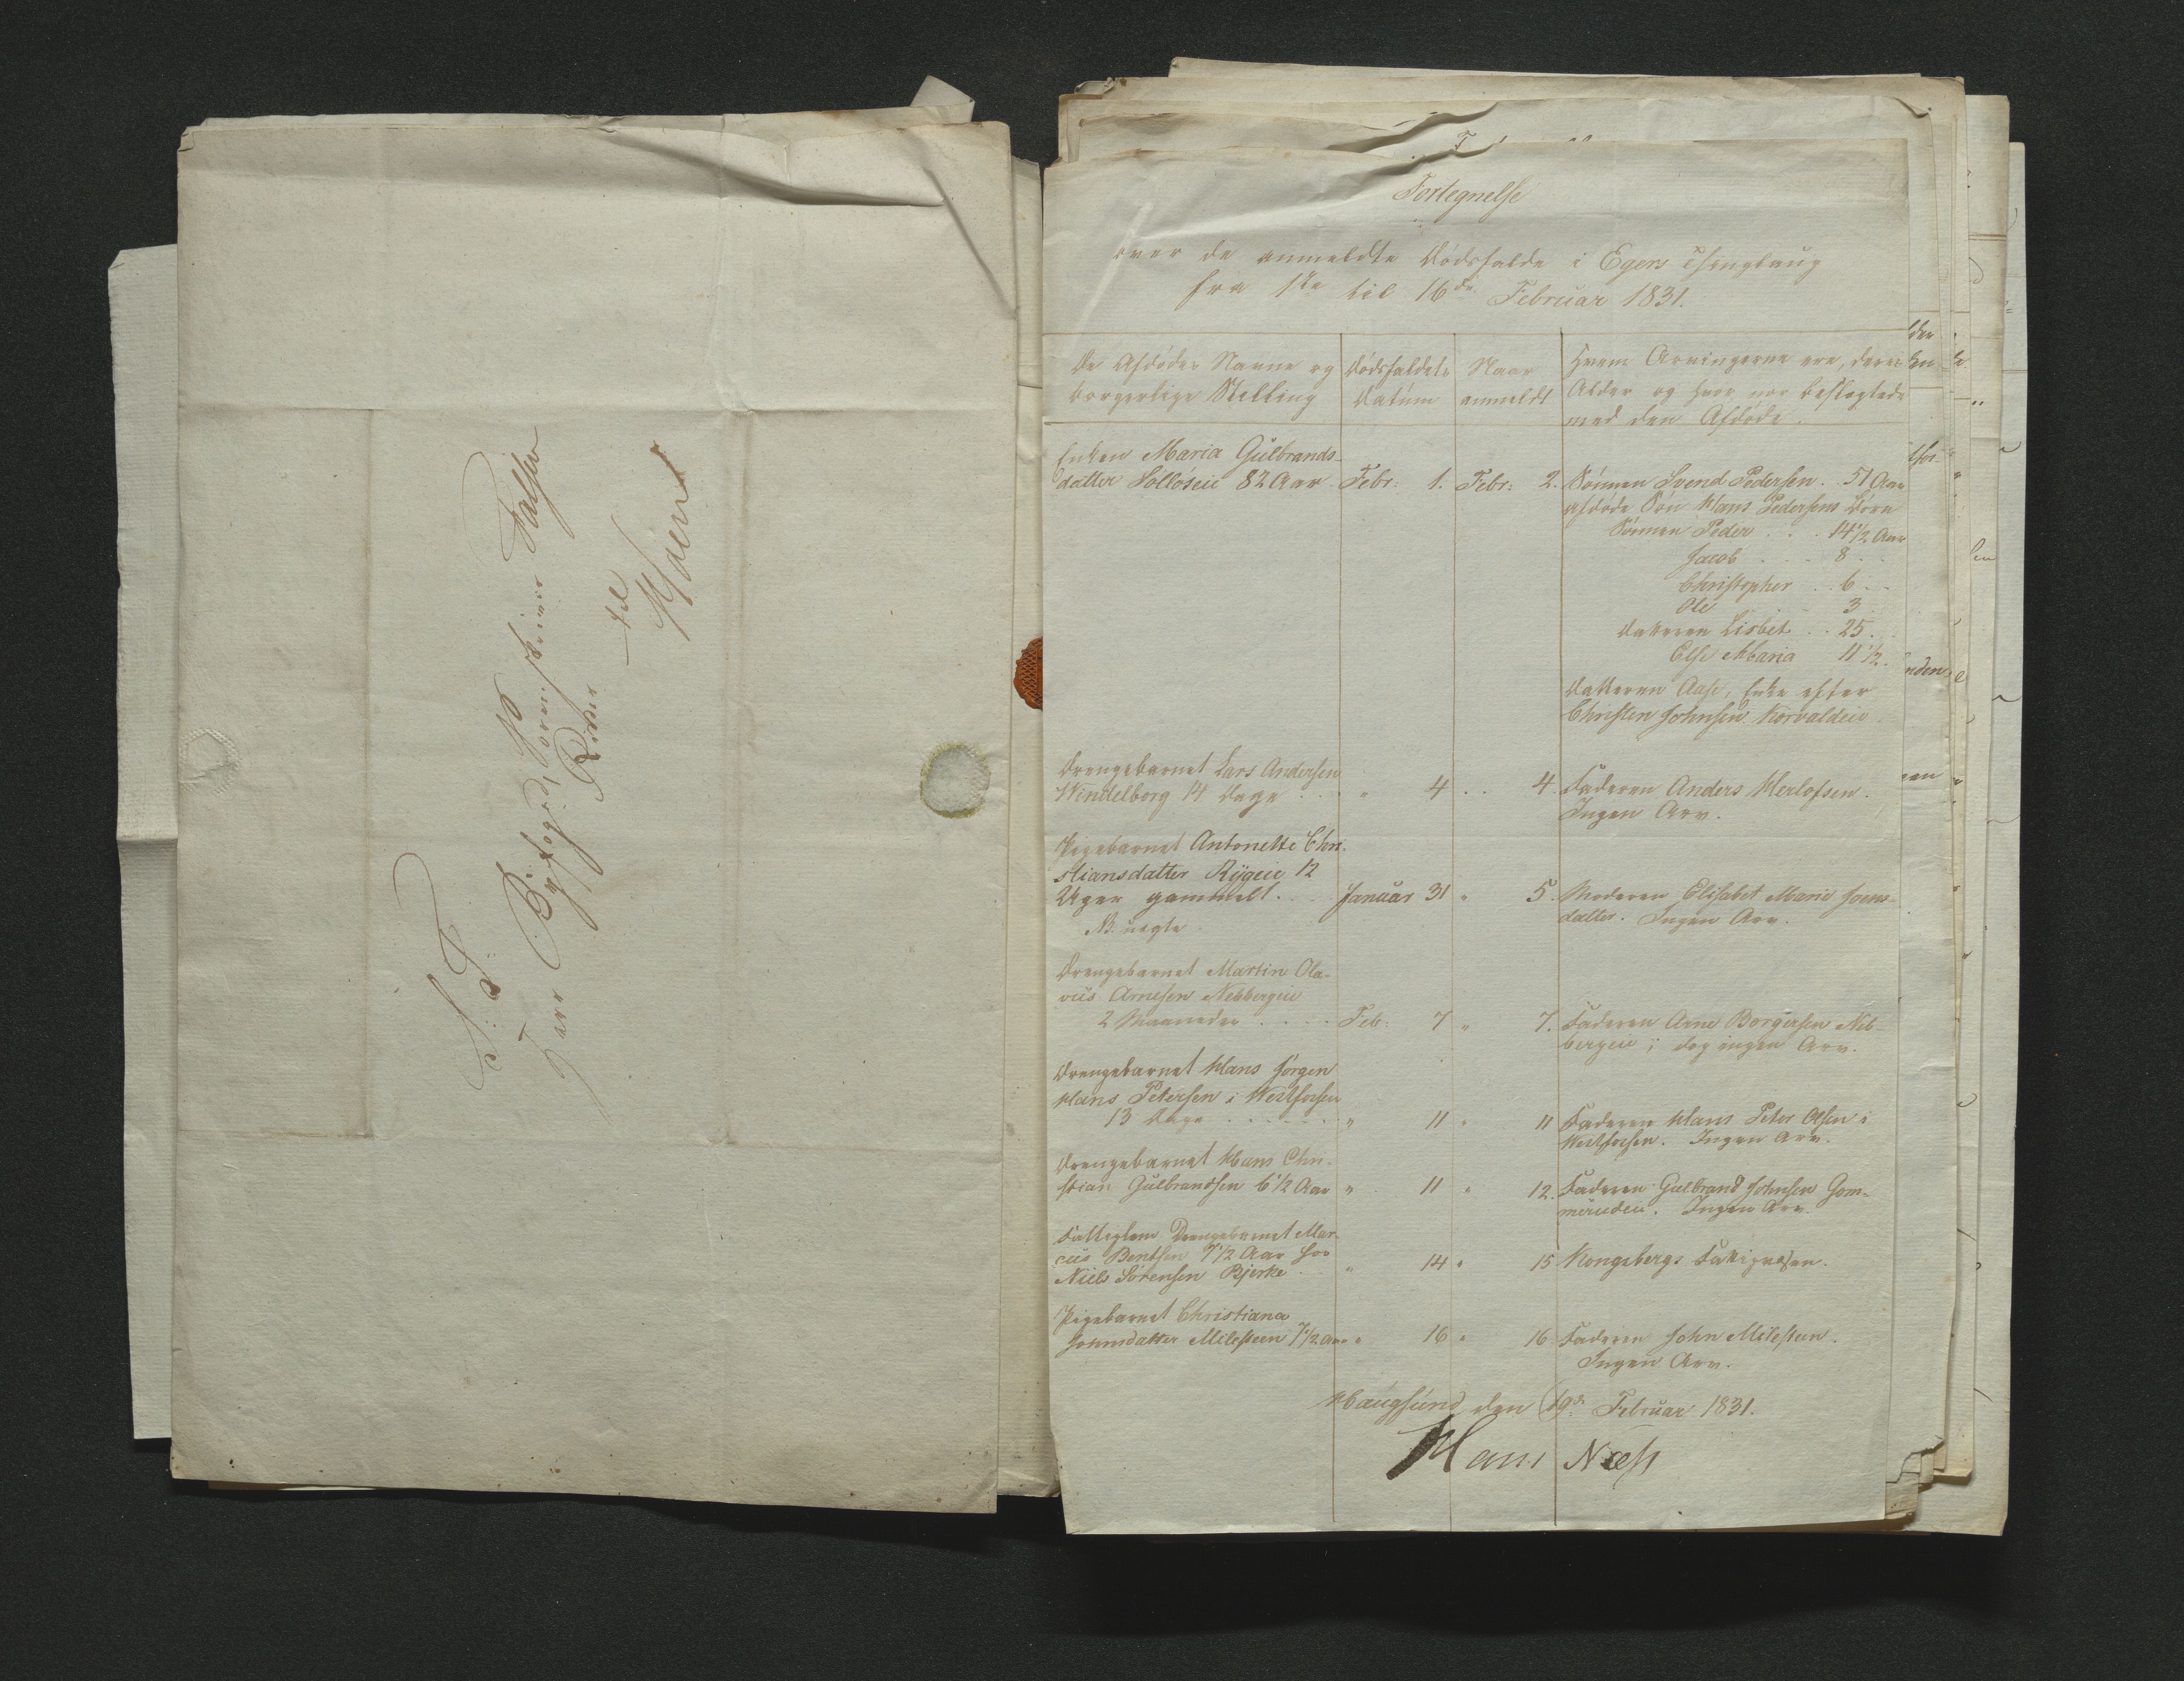 S: T:
Herr Byfoged, Sorenskriver Falsen
Ridder
til
Moen
Fortegnelse
over de anmeldte Dødsfalde i Egers Thinglaug
fra 1ste til 16de Februar 1831.
De Afdødes Navne og
borgerlige Stilling
Dødsfaldets
Datum
Naar
anmeldt
Hvem Arvingerne ere, deres
Alder og hvor nær beslægtede
med den Afdøde.
Enken Maria Gulbrands-
datter Solløseie 82 Aar. Febr: 1. Febr: 2. Sønnen Svend Pedersen. 51 Aar
afdøde Søn Hans Pedersens Børn
Sønnen Peder . . . 14 1/2 Aar
Jacob . . . 8 . .
Christopher . . 6 . .
Ole 3
Datteren Lisbet . . 25 .
Else Maria 11 1/2 .
Datteren Aase, Enke efter
Christen Johnsen Korvaldeie
Drengebarnet Lars Andersen
Windelborg 14 Dage . . . " 4 . . 4. Faderen Anders Herlofsen.
Ingen Arv.
Pigebarnet Antonette Chri-
stiansdatter Rygeie 12
Uger gammelt. . . Januar 31 " 5. Moderen Elisabet Marie Joens-
datter. Ingen Arv.
NB. uægte
Drengebarnet Martin Ola-
vus Arnesen Nebbergeie
2 Maaneder . . . . Feb: 7 " 7. Faderen Arne Borgersen Neb-
bergeie; dog ingen Arv.
Drengebarnet Hans Jørgen
Hans Petersen i Westfossen
13 Dage . . . . . . " 11 " 11 Faderen Hans Peter Olsen i
Westfossen. Ingen Arv.
Drengebarnet Hans Chri-
stian Gulbrandsen 6 1/2 Aar " 11 " 12. Faderen Gulbrand Johnsen Gom-
merudeie. Ingen Arv.
Fattiglem Drengebarnet Mar-
cus Bentsen 7 1/2 Aar hos
Niels Sørensen Bjerke . " 14 " 15 Kongsbergs Fattigvæsen.
Pigebarnet Christiana
Johnsdatter Milesteen 7 1/2 Aar " 16 " 16 Faderen John Milesteen.
Ingen Arv.
Haugsund den 19de Februar 1831.
Hans Næss